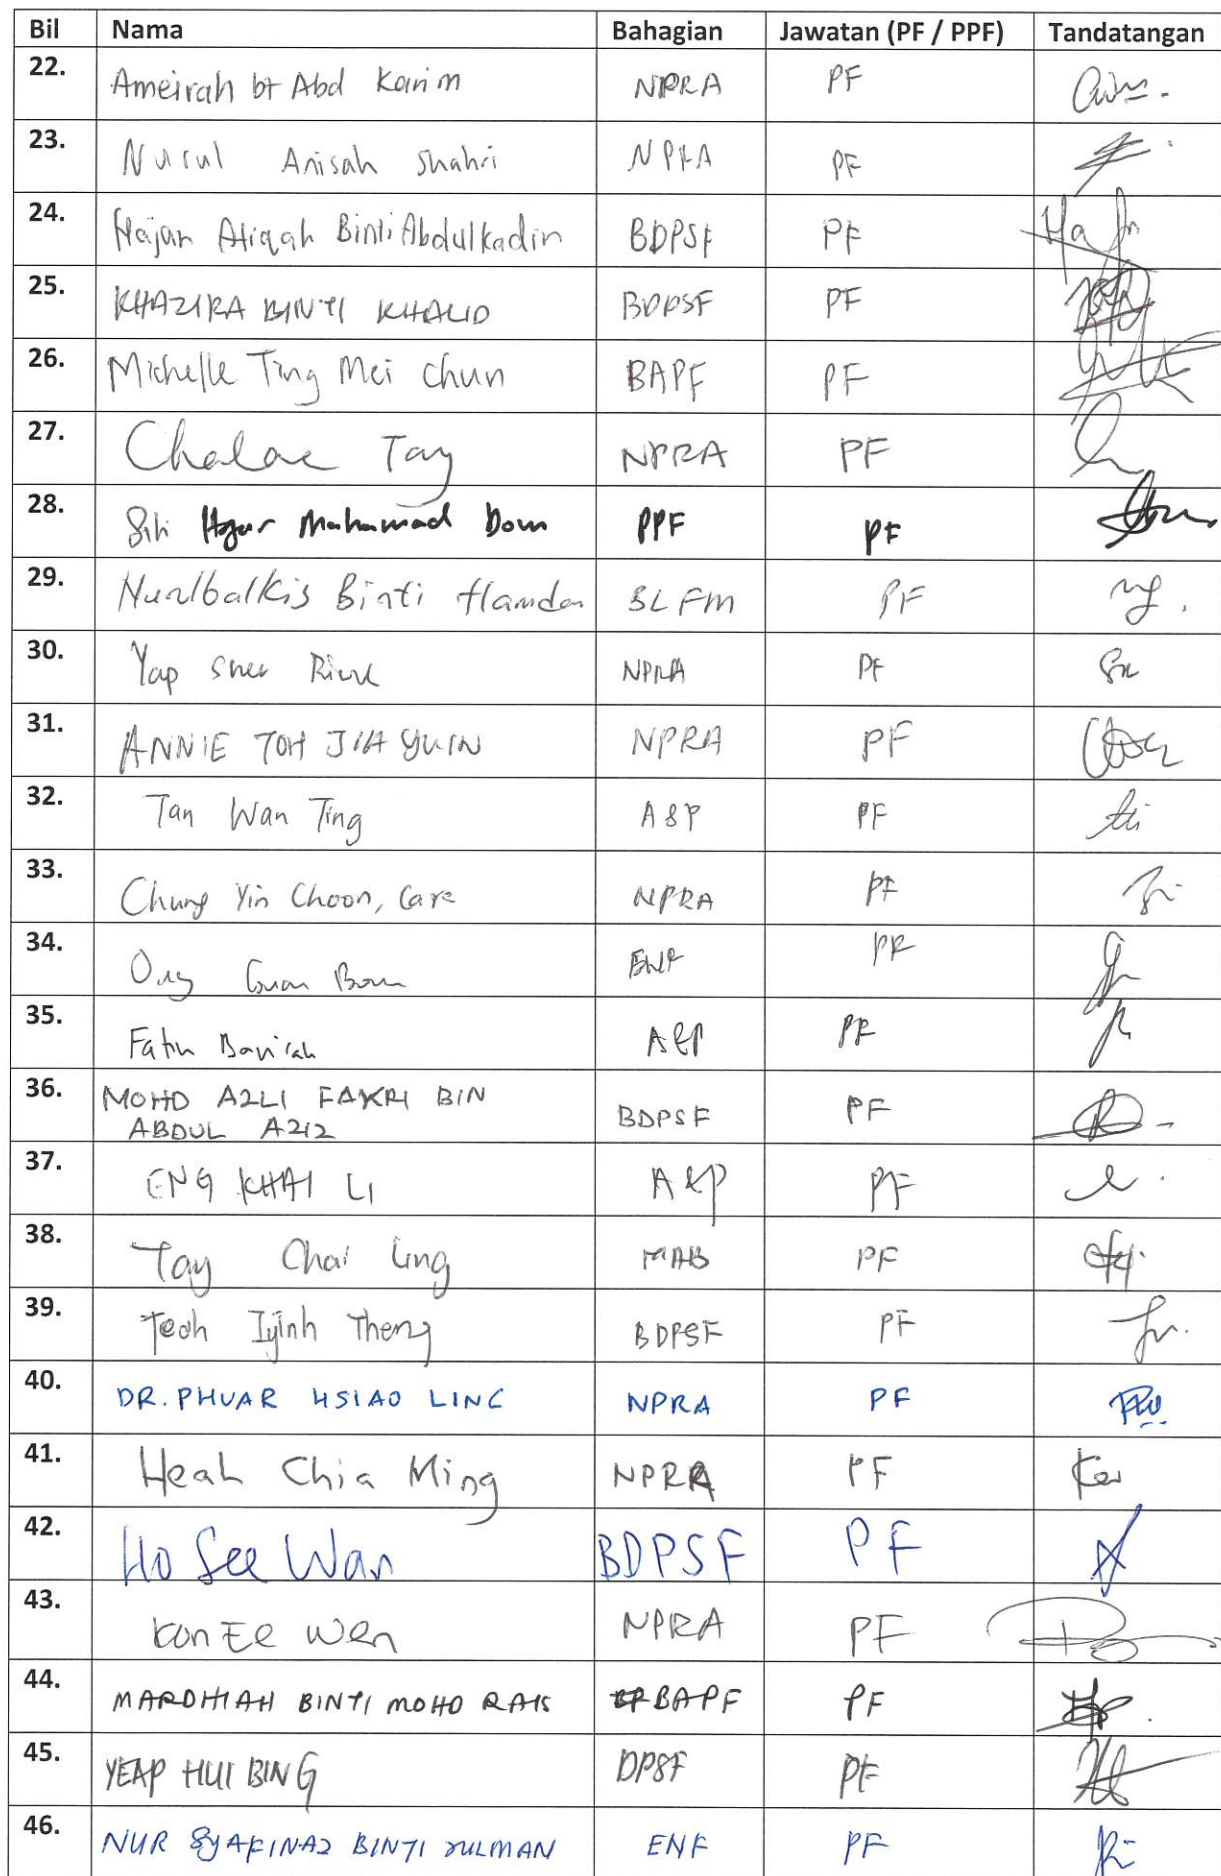 Bil Nama Bahagian Jawatan (PF / PPF) Tandatangan
22. Ameirah bt Abd Karim NPRA PF
23. Nurul Anisah Shahri NPRA PF
24. Hajar Atiqah Binti Abdulkadir BDPSF PF
25. KHAZIRA BINTI KHALID BDPSF PF
26. Michelle Ting Mei Chun BAPF PF
27. Tay NPRA PF
28. Siti Hajar Muhammad PPF PF
29. Nurulbalkis Binti Hamdan BLFM PF
30. Yap NPRA PF
31. ANNIE TOH JIA YUIN NPRA PF
32. Tan Wan Ting A&P PF
33. Chung Yin Choon, NPRA PF
34. Ong Guan PF
35. A&P PF
36. MOHD AZLI FAKRI BIN
ABDUL AZIZ BDPSF PF
37. ENG KHAI LI A&P PF
38. Tay Chai Ling MAB PF
39. Teoh Iyinh Theng BDPSF PF
40. DR. PHUAR HSIAO LING NPRA PF
41. Heah Chia Ming NPRA PF
42. Ho See Wan BDPSF PF
43. Kon Ee Wen NPRA PF
44. MARDHIAH BINTI MOHD RAIS BAPF PF
45. YEAP HUI BING DPSF PF
46. NUR SYAFINAZ BINTI ENF PF